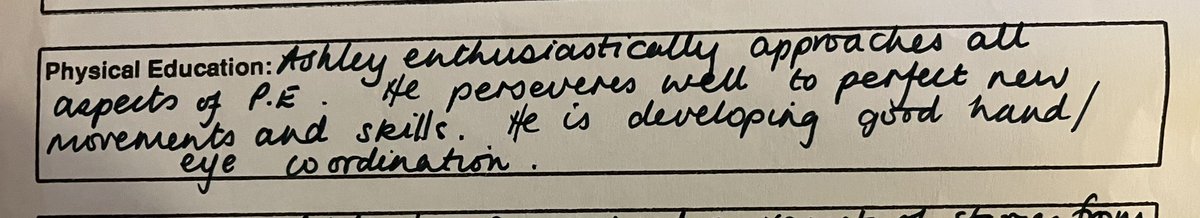 Physical Education: Ashley enthusiastically approaches all
aspects of P.E. He perseveres well to perfect new
movements and skills. He is developing good hand/
eye coordination.
of stories from